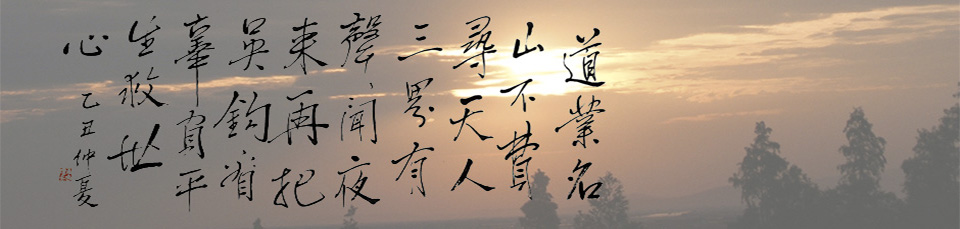 道業名
山不費
尋天人
三界有
聲聞夜
来再把
吳鈎看
辜負平
生救世
心
乙丑仲夏